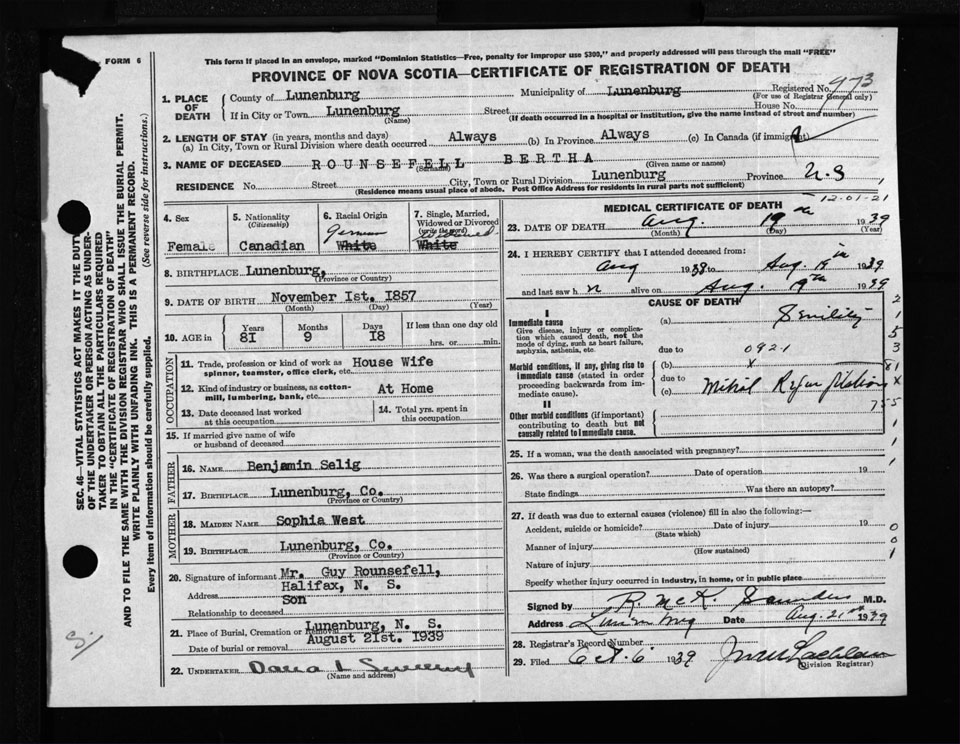 FORM 6
This form if placed in an envelope, marked "Dominion Statistics—Free, penalty for improper use $300," and properly addressed will pass through the mail "FREE"
PROVINCE OF NOVA SCOTIA—CERTIFICATE OF REGISTRATION OF DEATH
SEC. 46—VITAL STATISTICS ACT MAKES IT THE DUTY
OF THE UNDERTAKER OR PERSON ACTING AS UNDER-
TAKER TO OBTAIN ALL THE PARTICULARS REQUIRED
IN THE "CERTIFICATE OF REGISTRATION OF DEATH"
AND TO FILE THE SAME WITH THE DIVISION REGISTRAR WHO SHALL ISSUE THE BURIAL PERMIT.
WRITE PLAINLY WITH UNFADING INK. THIS IS A PERMANENT RECORD.
Every item of information should be carefully supplied. (See reverse side for instructions.)
1. PLACE OF DEATH
County of Lunenburg Municipality of Lunenburg Registered No. 973
(For use of Registrar General only)
If in City or Town Lunenburg Street House No.
(Name) (If death occurred in a hospital or institution, give the name instead of street and number)
2. LENGTH OF STAY (in years, months and days)
(a) In City, Town or Rural Division where death occurred Always (b) In Province Always (c) In Canada (if immigrant)
3. NAME OF DECEASED ROUNSEFELL BERTHA
(Surname) (Given name or names)
RESIDENCE No. Street City, Town or Rural Division Lunenburg Province N.S
(Residence means usual place of abode. Post Office Address for residents in rural parts not sufficient)
4. Sex
Female
5. Nationality
(Citizenship)
Canadian
6. Racial Origin
German
White
7. Single, Married,
Widowed or Divorced
(write the word)
Widowed
White
8. BIRTHPLACE Lunenburg,
(Province or Country)
9. DATE OF BIRTH November 1st. 1857
(Month) (Day) (Year)
10. AGE in Years Months Days If less than one day old
81 9 18 hrs. or min.
OCCUPATION
11. Trade, profession or kind of work as House Wife
spinner, teamster, office clerk, etc.
12. Kind of industry or business, as cotton- At Home
mill, lumbering, bank, etc.
13. Date deceased last worked
at this occupation
14. Total yrs. spent in
this occupation
15. If married give name of wife
or husband of deceased
FATHER
16. NAME Benjamin Selig
17. BIRTHPLACE Lunenburg, Co.
(Province or Country)
MOTHER
18. MAIDEN NAME Sophia West
19. BIRTHPLACE Lunenburg, Co.
(Province or Country)
20. Signature of informant Mr. Guy Rounsefell,
Address Halifax, N. S.
Relationship to deceased Son
21. Place of Burial, Cremation or Removal Lunenburg, N. S.
Date of burial or removal August 21st. 1939
22. UNDERTAKER Dana L Sweeny
(Name and address)
12-01-21
MEDICAL CERTIFICATE OF DEATH
23. DATE OF DEATH Aug. 19th 1939
(Month) (Day) (Year)
24. I HEREBY CERTIFY that I attended deceased from:
Aug 1939 to Aug. 19th 1939
and last saw h alive on Aug. 19th 1939
CAUSE OF DEATH
I
Immediate cause
Give disease, injury or complica-
tion which caused death, not the
mode of dying, such as heart failure,
asphyxia, asthenia, etc.
(a) Senility
due to 0921
Morbid conditions, if any, giving rise to
immediate cause (stated in order
proceeding backwards from im-
mediate cause).
(b) x
due to
(c) Mitral Regurgitation
II
Other morbid conditions (if important)
contributing to death but not
causally related to immediate cause.
25. If a woman, was the death associated with pregnancy?
26. Was there a surgical operation? Date of operation 19
State findings Was there an autopsy?
27. If death was due to external causes (violence) fill in also the following:—
Accident, suicide or homicide? Date of injury 19
(State which)
Manner of injury
(How sustained)
Nature of injury
Specify whether injury occurred in industry, in home, or in public place
Signed by R. McK. Saunders M.D.
Address Lunenburg Date Aug. 21st 1939
28. Registrar's Record Number
29. Filed Oct. 6 1939
(Division Registrar)